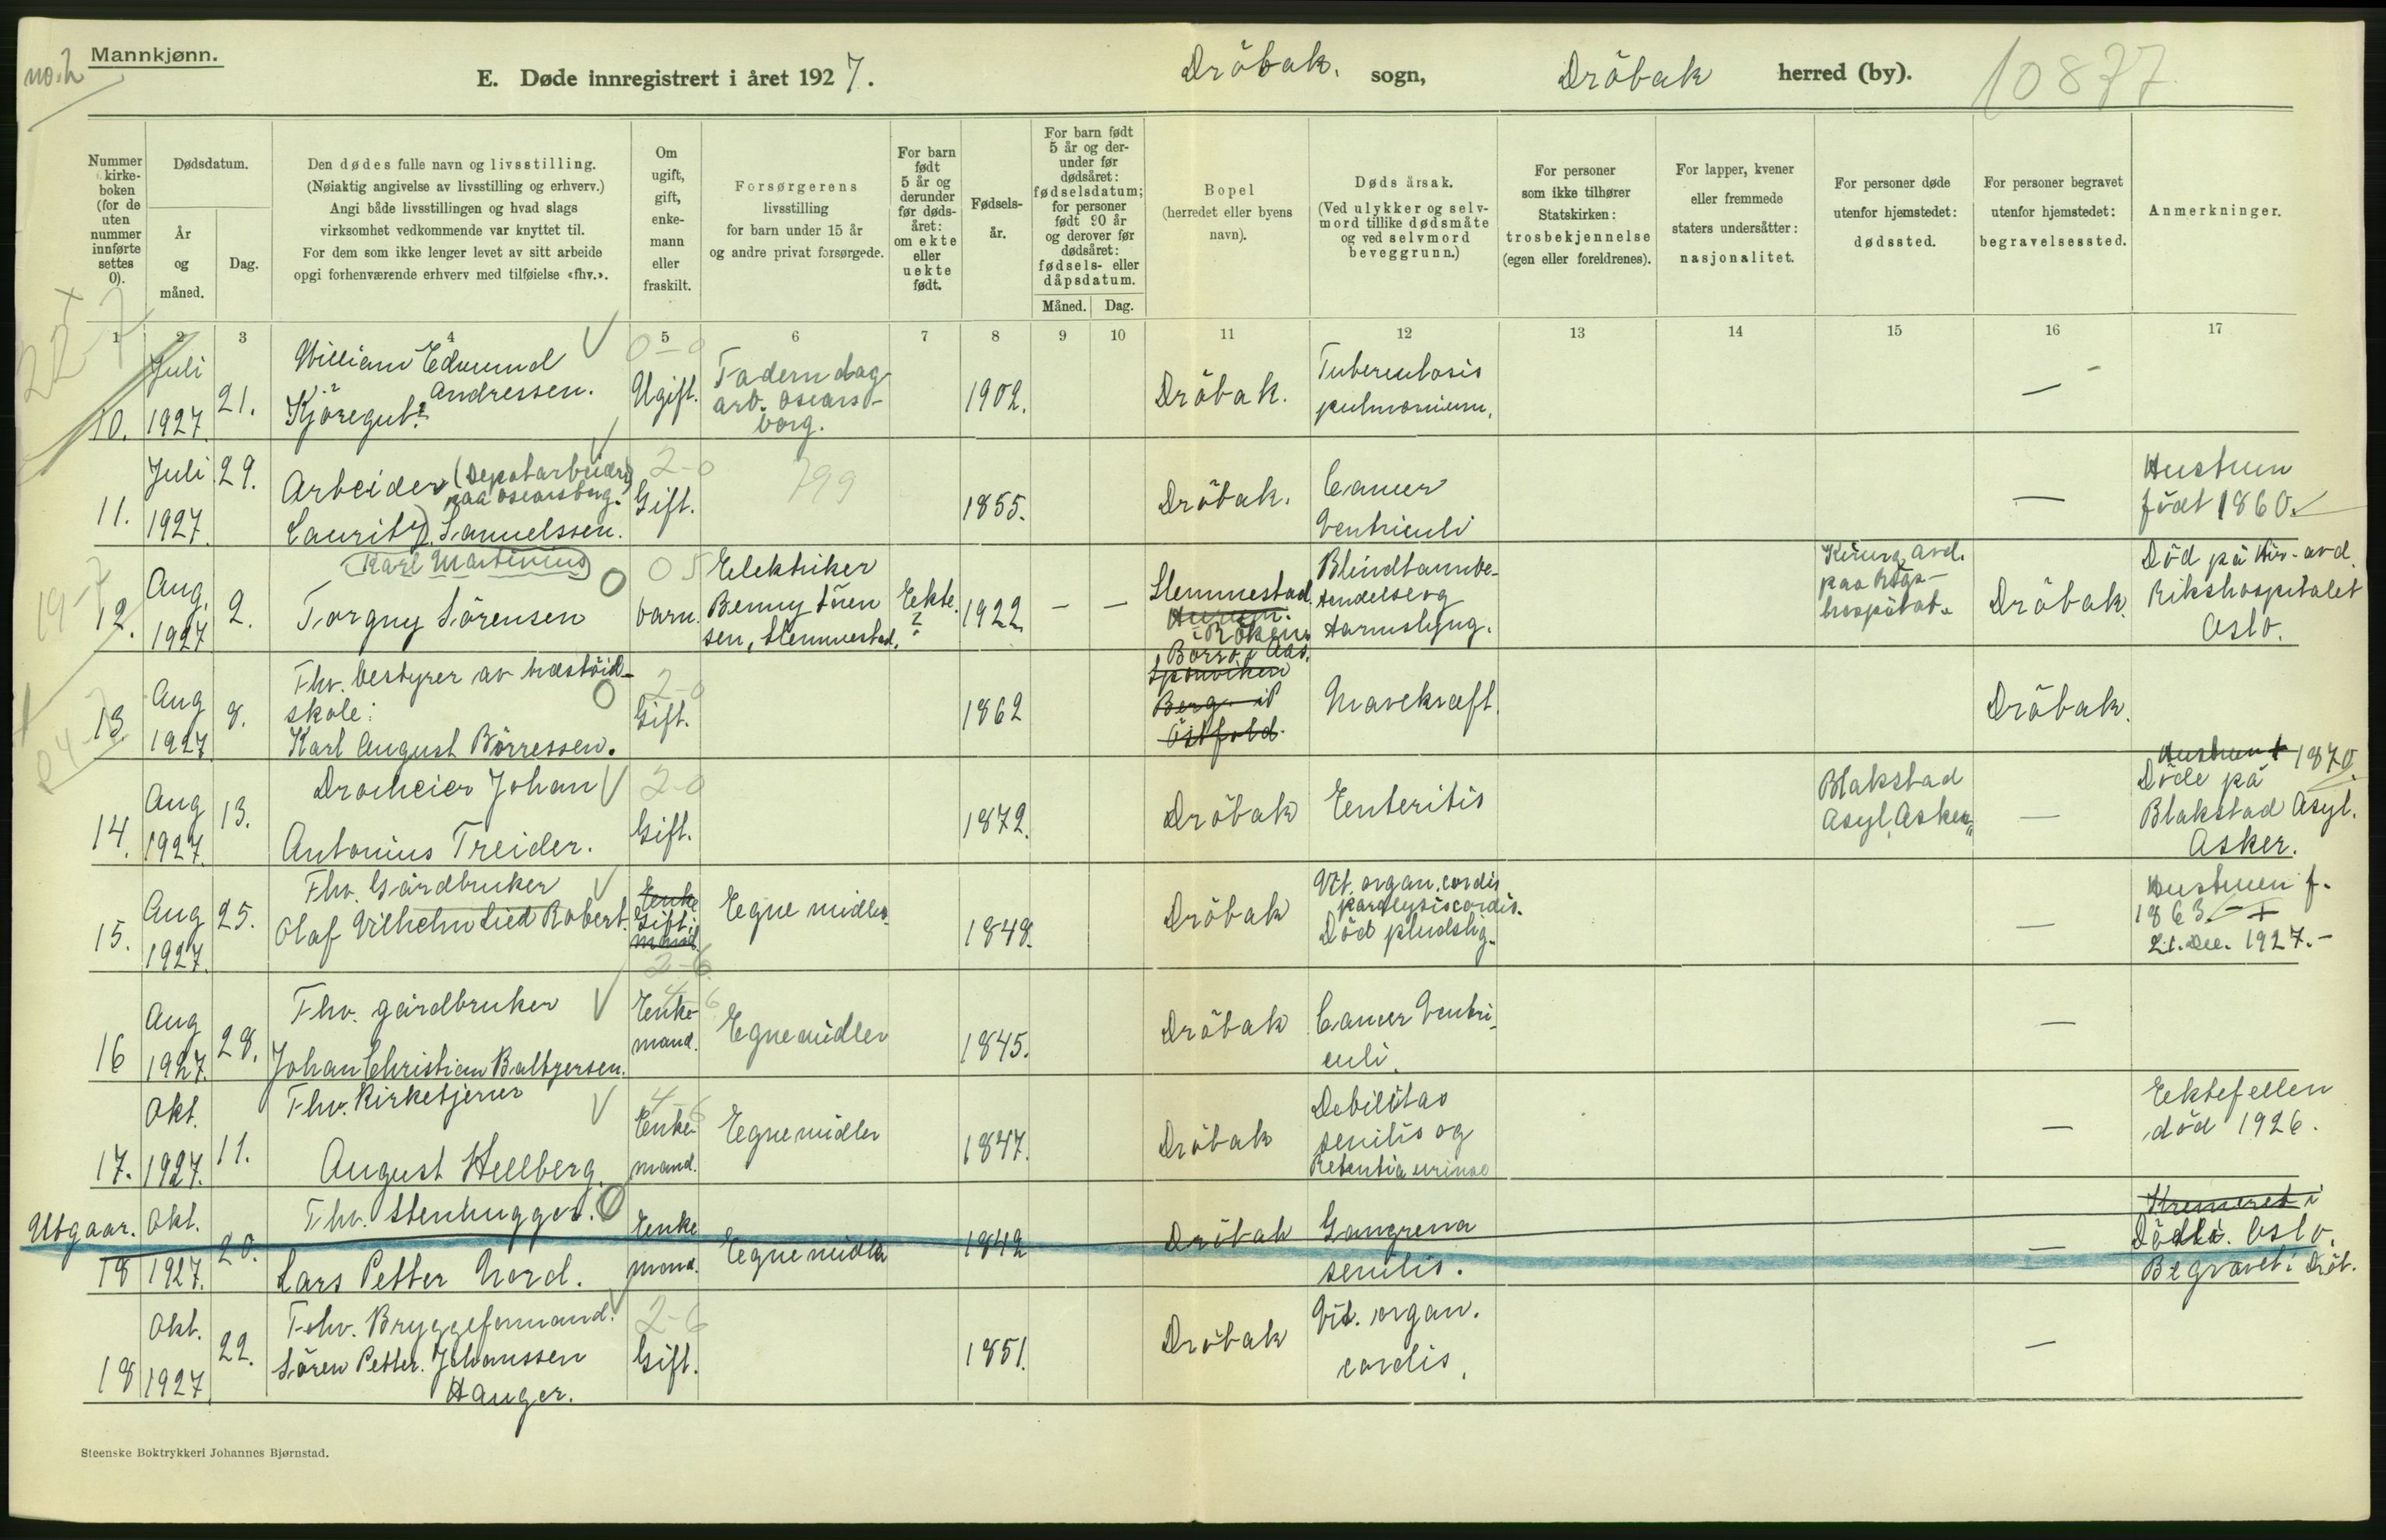 Mannkjønn.
no. 2
E. Døde innregistrert i året 1927.
Dröbak. sogn,
Dröbak herred (by).
10877
Nummer
kirke-
boken
(for de
uten
nummer
innførte
settes
0).
Dødsdatum.
År
og
måned.
Dag.
Den dødes fulle navn og livsstilling.
(Nøiaktig angivelse av livsstilling og erhverv.)
Angi både livsstillingen og hvad slags
virksomhet vedkommende var knyttet til.
For dem som ikke lenger levet av sitt arbeide
opgi forhenværende erhverv med tilføielse «fhv.».
Om
ugift,
gift,
enke-
mann
eller
fraskilt.
Forsørgerens
livsstilling
for barn under 15 år
og andre privat forsørgede.
For barn
født
5 år og
derunder
før døds-
året:
om ekte
eller
uekte
født.
Fødsels-
år.
For barn født
5 år og der-
under før
dødsåret:
fødselsdatum;
for personer
født 90 år
og derover før
dødsåret:
fødsels- eller
dåpsdatum.
Måned.
Dag.
Bopel
(herredet eller byens
navn).
Dødsårsak.
(Ved ulykker og selv-
mord tillike dødsmåte
og ved selvmord
beveggrunn.)
For personer
som ikke tilhører
Statskirken:
trosbekjennelse
(egen eller foreldrenes).
For lapper, kvener
eller fremmede
staters undersåtter:
nasjonalitet.
For personer døde
utenfor hjemstedet:
dødssted.
For personer begravet
utenfor hjemstedet:
begravelsessted.
Anmerkninger.
1 2 3 4 5 6 7 8 9 10 11 12 13 14 15 16 17
10.
Juli
1927.
21.
William Edmund
Andressen.
Kjöregut.
0-0
Ugift.
arb. Oscars-
borg.
1902.
Dröbak.
Tuberculosis
pulmonum.
—
11.
Juli
1927.
29.
Arbeider (Depotarbeider
paa Oscarsborg.)
Lauritz Samuelssen.
2-0
Gift.
799
1855.
Dröbak.
Cancer
Ventriculi
—
Hustruen
født 1860.
19-7
12.
Aug.
1927
2.
(Karl Martinius)
Torgny Sörensen
05
barn.
Elektriker
Benny Sören
sen, Slemmestad.
Ekte.
?
1922
—
—
Slemmestad.
Hurum.
i Röken
Blindtarmbe-
tendelse og
tarmslyng.
Kirurg. avd.
paa Rigs-
hospitalet.
Dröbak.
Död på kir. avd.
Rikshospitalet
Oslo.
24-7
13.
Aug
1927
8.
Fhv. bestyrer av
skole:
Karl August Börressen.
2-0
Gift.
1862
Aas.
Sponviken
Berg i
Östfold.
Mavekræft.
Dröbak.
14.
Aug
1927.
13.
Drosheier Johan
Antonius Treider.
2-0
Gift.
1872.
Dröbak
Enteritis
Blakstad
Asyl, Asker
—
Hustrun f 1870.
Döde på
Blakstad Asyl.
Asker.
15.
Aug
1927.
25.
Fhv. Gårdbruker
Olaf Vilhelm Lied Robert.
Enke
Gift.
mand
2-6
Egne midler.
1848.
Dröbak
Vit. organ. cordis
paralysis cordis.
Död pludslig.
—
Hustruen f.
1863 - +
21. Dec. 1927. -
16
Aug
1927.
28.
Fhv. gårdbruker
Johan Christian Baltzersen.
4-6
Enke-
mand.
Egne midler
1845.
Dröbak
Cancer Ventri-
culi.
—
17.
Okt.
1927.
11.
Fhv. Kirketjener
August Hellberg.
4-6
Enke-
mand.
Egne midler
1847.
Dröbak
Debilitas
senilis og
Retentia urinae
—
Ektefellen
död 1926.
Utgaar.
18
Okt.
1927.
20.
Fhv. Stenhugger.
Lars Petter Nord.
Enke
mand.
Egne midler
1842
Dröbak
Gangrena
senilis.
—
Kremeret i
Död i. Oslo.
Begravet i Dröb.
18
Okt.
1927.
22.
Fhv. Bryggeformand.
Sören Petter Johanssen
Hauger.
2-6
Gift.
1851.
Dröbak
Vit. organ.
cordis.
—
Steenske Boktrykkeri Johannes Bjørnstad.